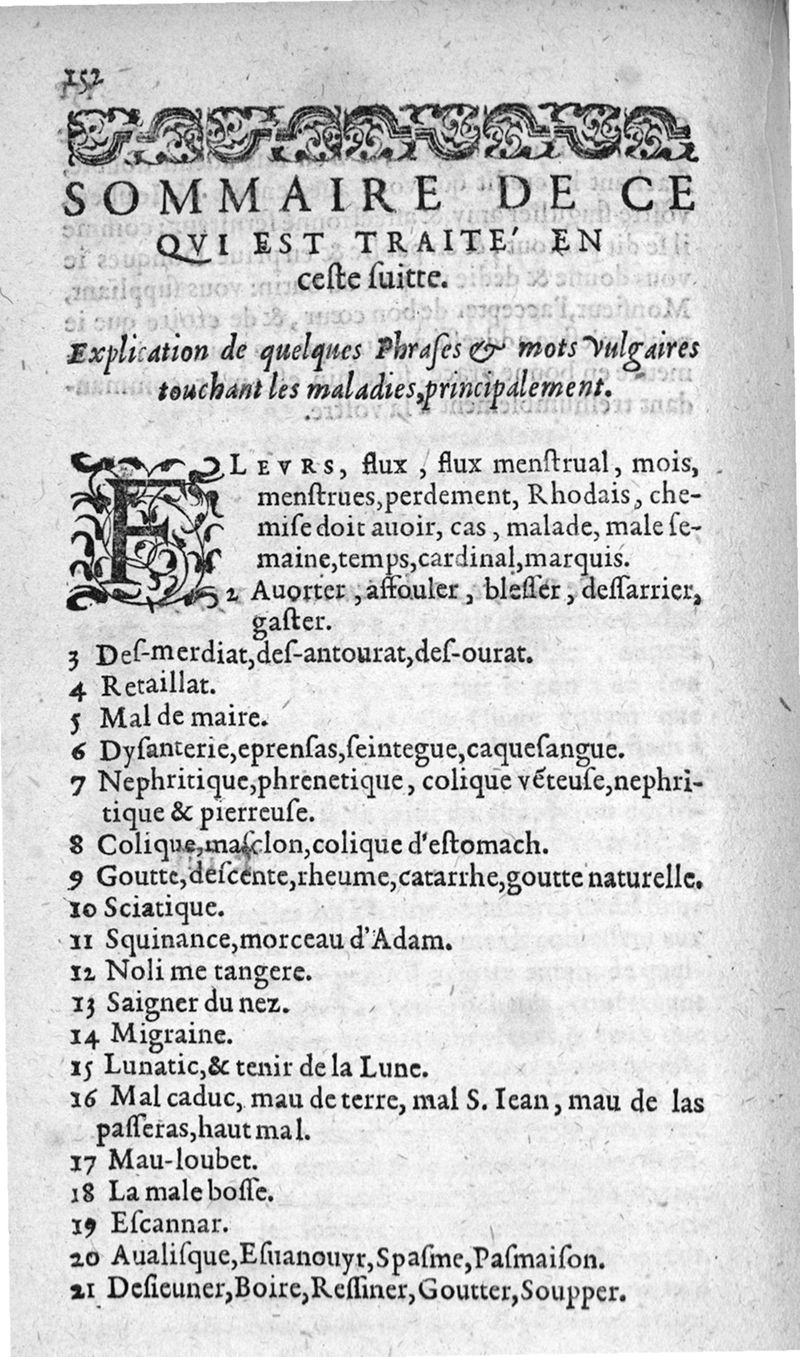 152
SOMMAIRE DE CE
QVI EST TRAITE' EN
ceſte ſuitte.
Explication de quelques Phraſes & mots vulgaires
touchant les maladies,principalement.
FLEVRS, flux , flux menſtrual, mois,
menſtrues,perdement, Rhodais, che-
miſe doit auoir, cas , malade, male ſe-
maine,temps,cardinal,marquis.
2 Auorter , affouler , bleſſer , deſſarrier,
gaſter.
3 Deſ-merdiat,deſ-antourat,deſ-ourat.
4 Retaillat.
5 Mal de maire.
6 Dyſanterie,eprenſas,ſeintegue,caqueſangue.
7 Nephritique,phrenetique, colique vẽteuſe,nephri-
tique & pierreuſe.
8 Colique,maſclon,colique d'eſtomach.
9 Goutte,deſcẽte,rheume,catarrhe,goutte naturelle.
10 Sciatique.
11 Squinance,morceau d'Adam.
12 Noli me tangere.
13 Saigner du nez.
14 Migraine.
15 Lunatic,& tenir de la Lune.
16 Mal caduc, mau de terre, mal S. Iean, mau de las
paſſeras,haut mal.
17 Mau-loubet.
18 La male boſſe.
19 Eſcannar.
20 Aualiſque,Eſuanouyr,Spaſme,Paſmaiſon.
21 Deſieuner,Boire,Reſſiner,Goutter,Soupper.